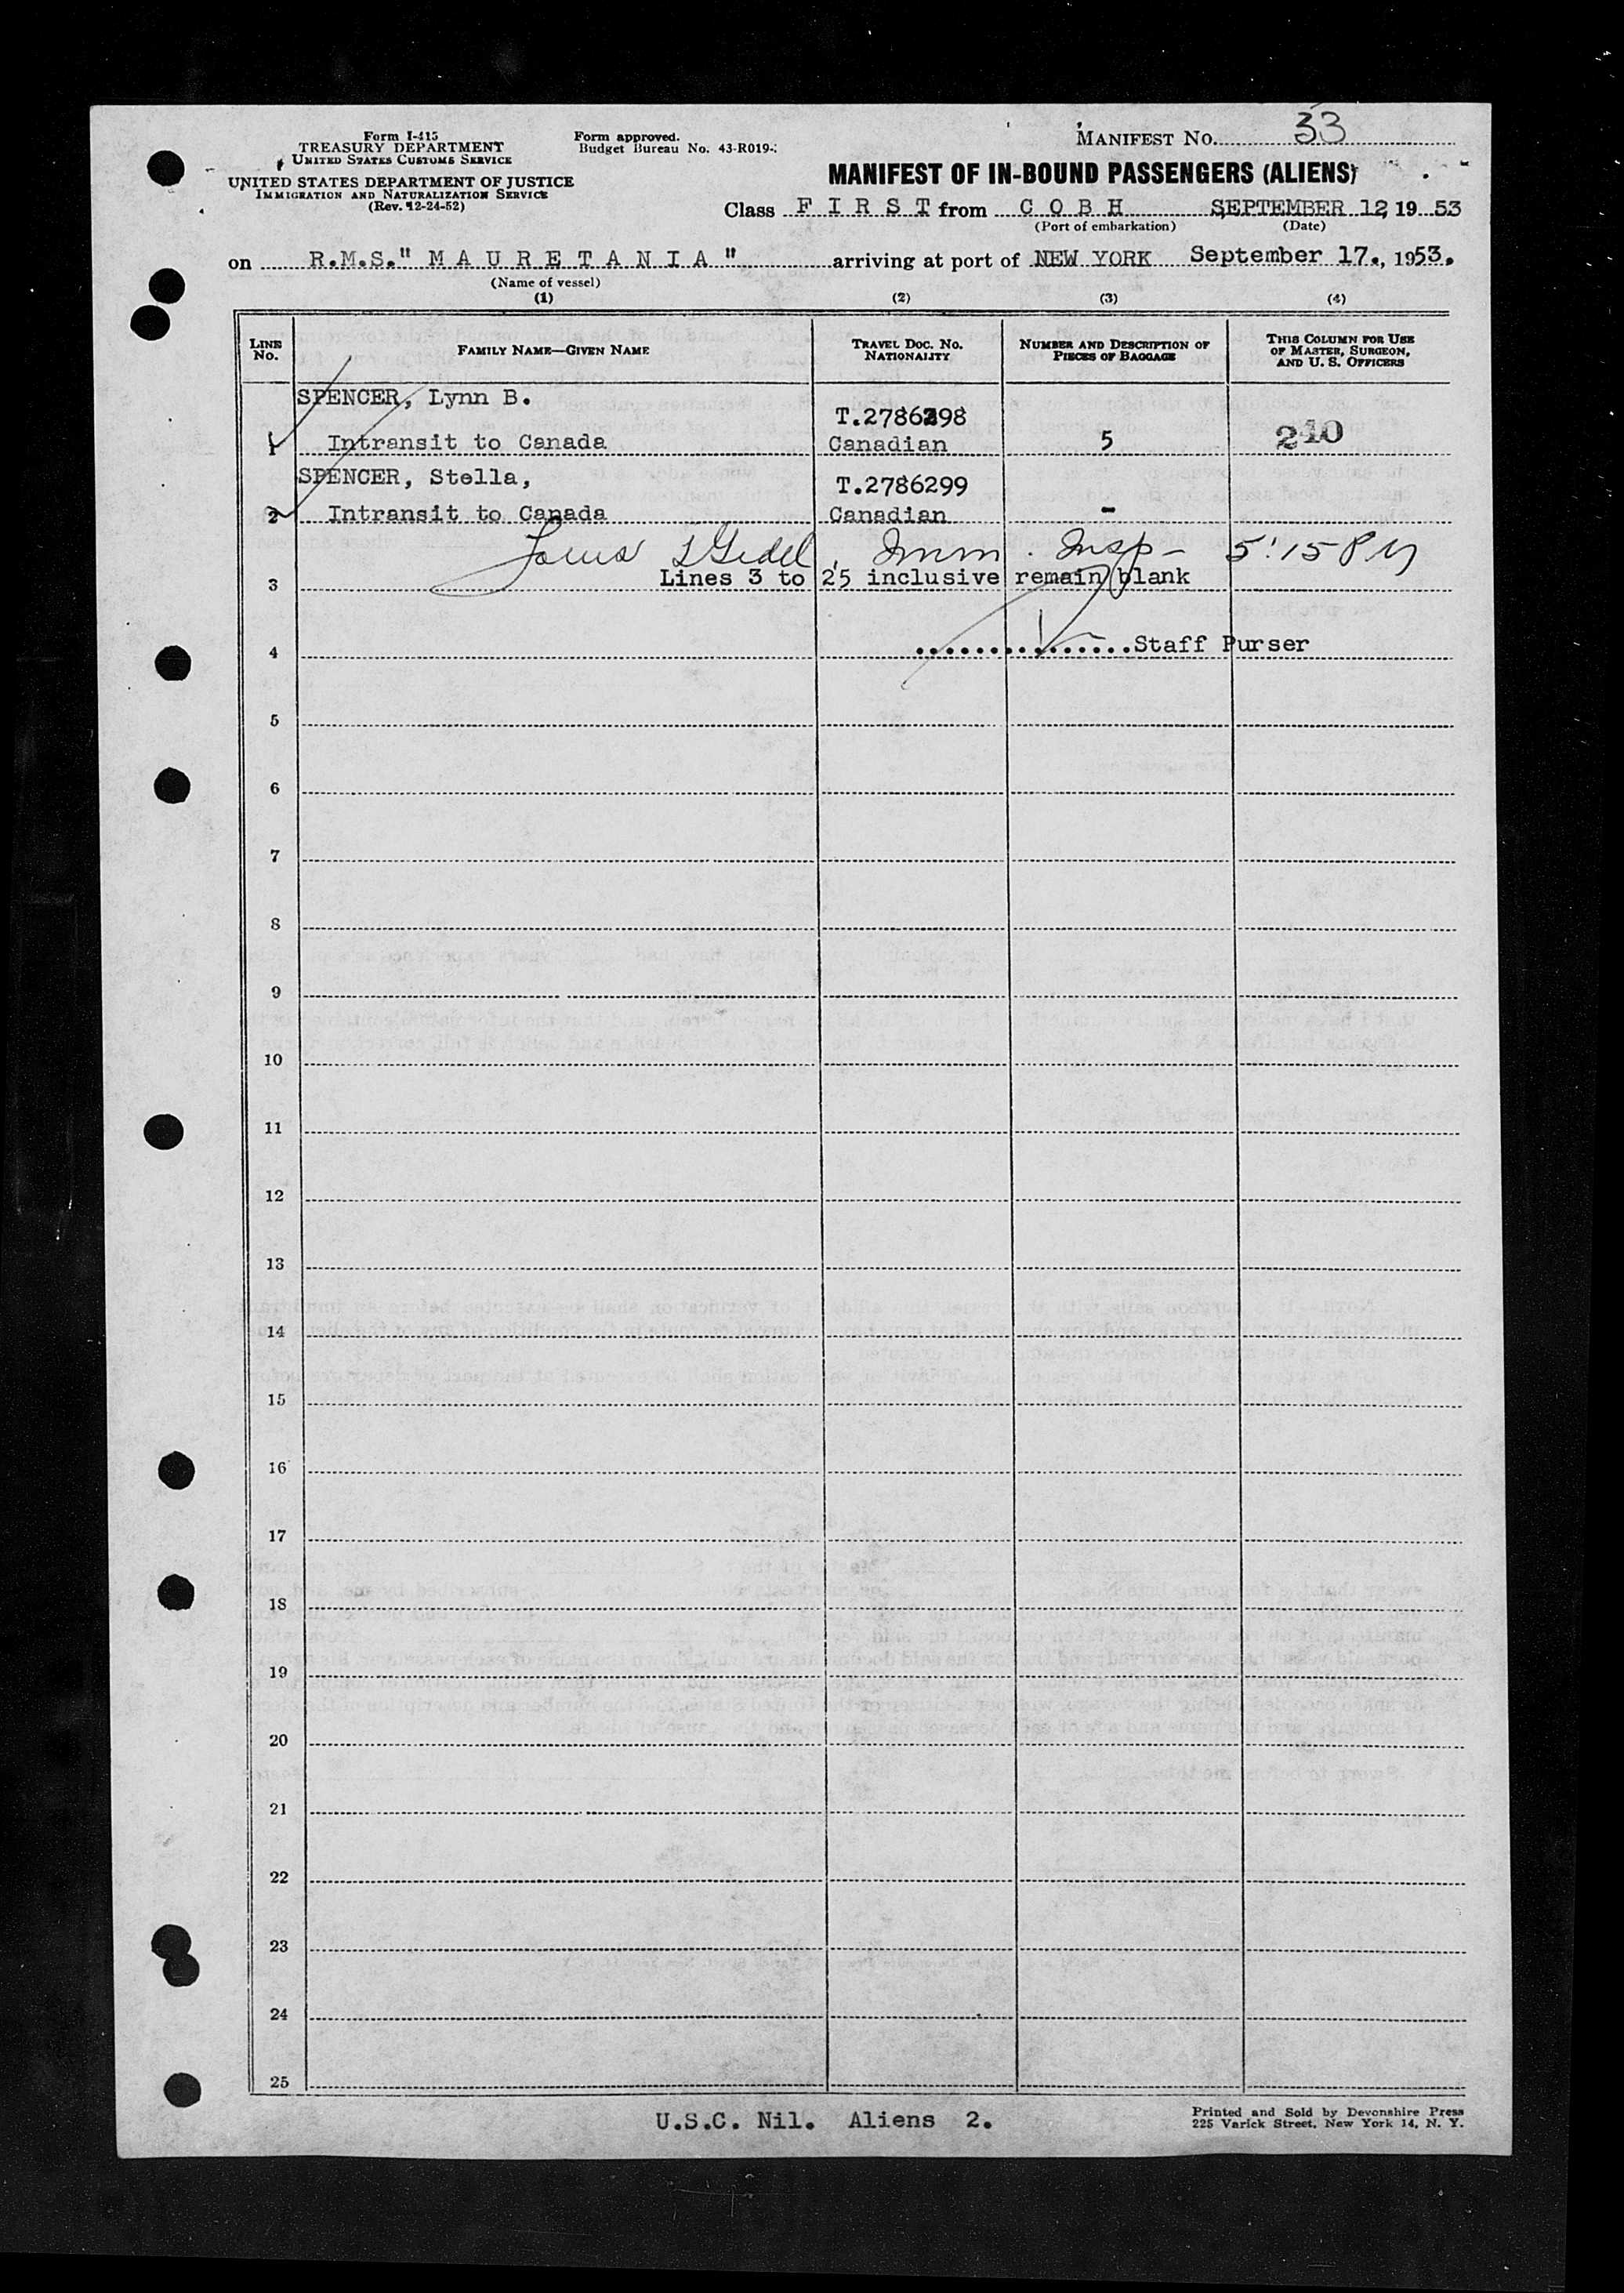 Form I-415
TREASURY DEPARTMENT
UNITED STATES CUSTOMS SERVICE
UNITED STATES DEPARTMENT OF JUSTICE
IMMIGRATION AND NATURALIZATION SERVICE
(Rev. 12-24-52)
Form approved.
Budget Bureau No. 43-R019-
MANIFEST NO. 33
MANIFEST OF IN-BOUND PASSENGERS (ALIENS)
Class F I R S T from C O B H SEPTEMBER 12 19 53
(Port of embarkation) (Date)
on R.M.S." M A U R E T A N I A " arriving at port of NEW YORK September 17., 1953.
(Name of vessel)
(1) (2) (3) (4)
LINE NO. FAMILY NAME—GIVEN NAME TRAVEL DOC. NO. NATIONALITY NUMBER AND DESCRIPTION OF PIECES OF BAGGAGE THIS COLUMN FOR USE OF MASTER, SURGEON, AND U. S. OFFICERS
SPENCER, Lynn B. T.2786298
1 Intransit to Canada Canadian 5 240
SPENCER, Stella, T.2786299
2 Intransit to Canada Canadian -
Imm. Insp- 5:15 PM
3 Lines 3 to 25 inclusive remain blank
4 ...............Staff Purser
5
6
7
8
9
10
11
12
13
14
15
16
17
18
19
20
21
22
23
24
25
U.S.C. Nil. Aliens 2.
Printed and Sold by Devonshire Press
225 Varick Street, New York 14, N. Y.